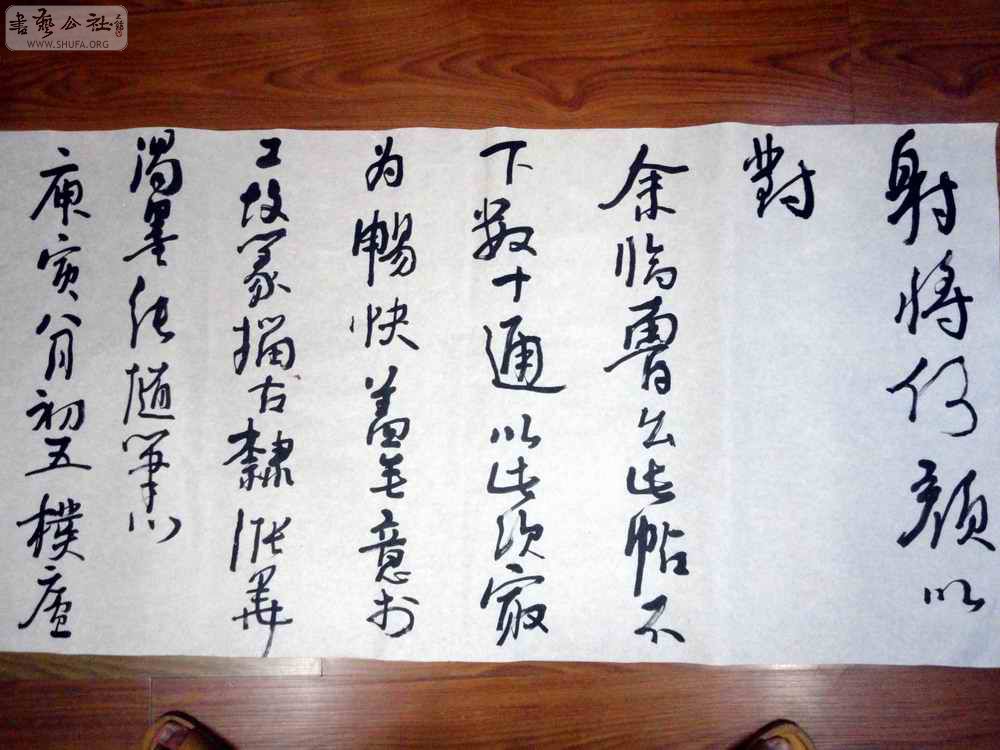 書藝公社
WWW.SHUFA.ORG
射將何顏以
對
余临魯公此帖不
下數十通以此次最
为暢快蓋无意於
工故篆籀古隸
渴墨 隨筆
庚寅八月初五樸廬